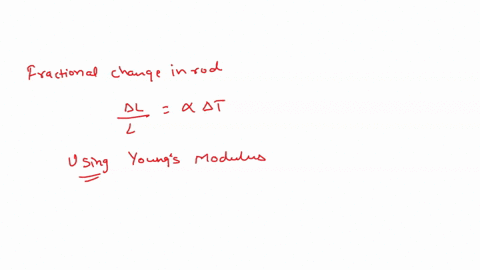 Fractional change in rod
ΔL/L = α ΔT
Using Young's Modulus